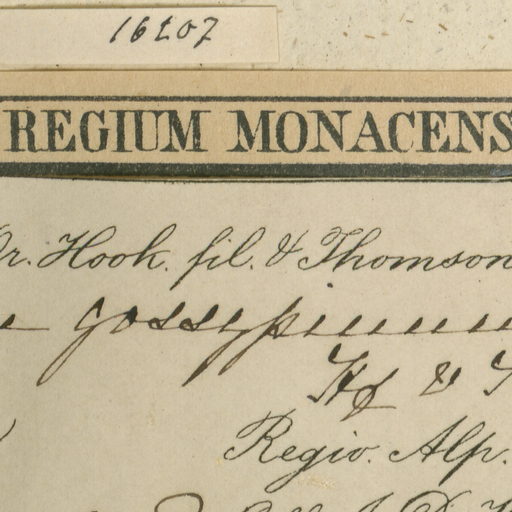 16207
REGIUM MONACENS
Dr. Hook. fil. & Thomson
gossypinum
Hf &
Regio. Alp.